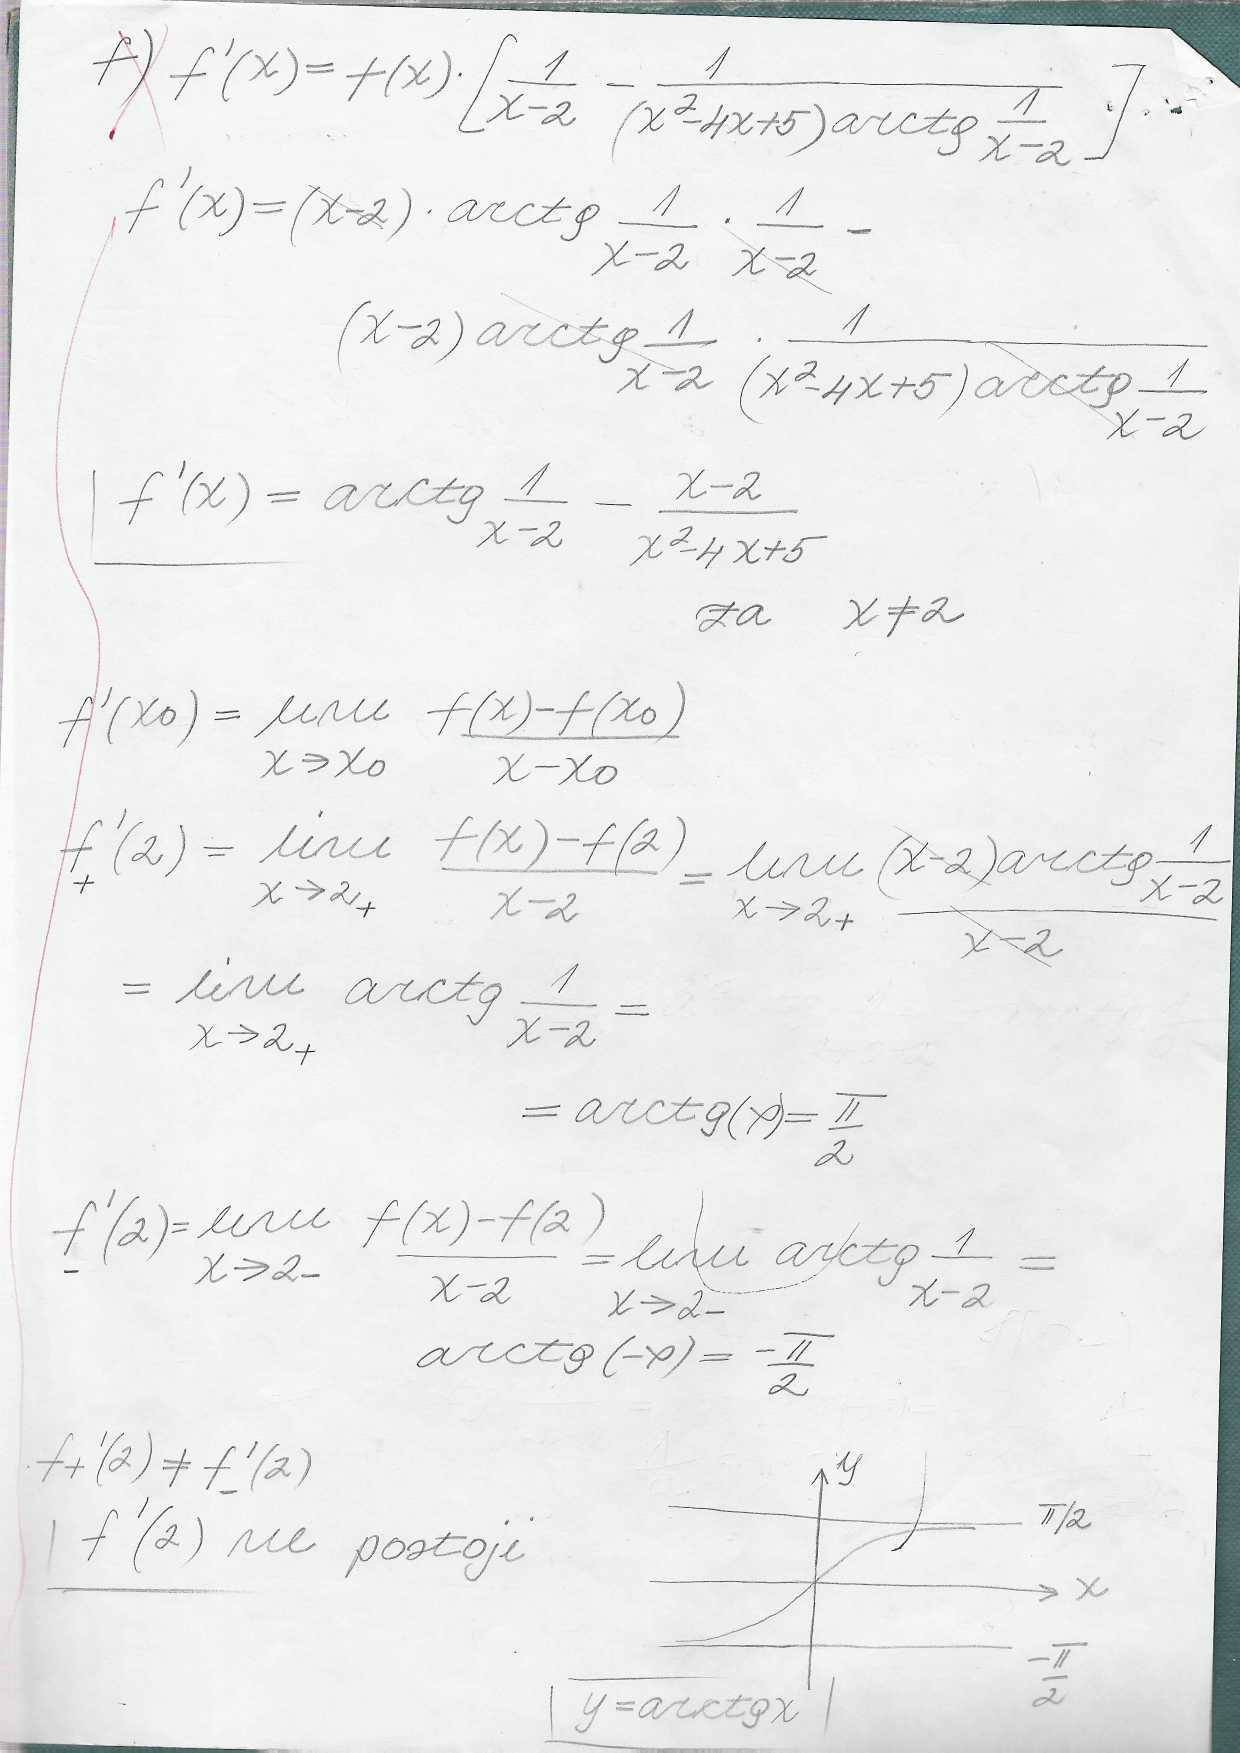 f) f'(x) = f(x)·[1/(x-2) - 1/((x²-4x+5) arctg 1/(x-2))]
f'(x) = (x-2) · arctg 1/(x-2) · 1/(x-2) -
(x-2) arctg 1/(x-2) · 1/((x²-4x+5) arctg 1/(x-2))
f'(x) = arctg 1/(x-2) - (x-2)/(x²-4x+5)
za x≠2
f'(x0) = lim x→x0 (f(x)-f(x0))/(x-x0)
f'+(2) = lim x→2+ (f(x)-f(2))/(x-2) = lim x→2+ ((x-2) arctg 1/(x-2))/(x-2)
= lim x→2+ arctg 1/(x-2) =
= arctg(∞) = π/2
f'-(2) = lim x→2- (f(x)-f(2))/(x-2) = lim x→2- arctg 1/(x-2) =
arctg(-∞) = -π/2
f+'(2) ≠ f-'(2)
f'(2) ne postoji
y
π/2
x
-π/2
y = arctgx